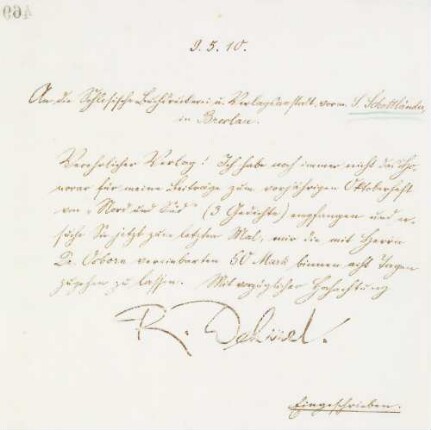 9.5.10.
An die Schlesische Buchdruckerei u. Verlagsanstalt vorm. S. Schottländer,
in Breslau.
Verehrlicher Verlag! Ich habe noch immer nicht das Ho-
norar für meine Beiträge zum vorjährigen Oktoberheft
von „Nord und Süd“ (3 Gedichte) empfangen und er-
suche Sie jetzt zum letzten Mal, mir die mit Herrn
Dr. Osborn vereinbarten 50 Mark binnen acht Tagen
zugehen zu lassen. Mit vorzüglicher Hochachtung
R. Dehmel.
Eingeschrieben.